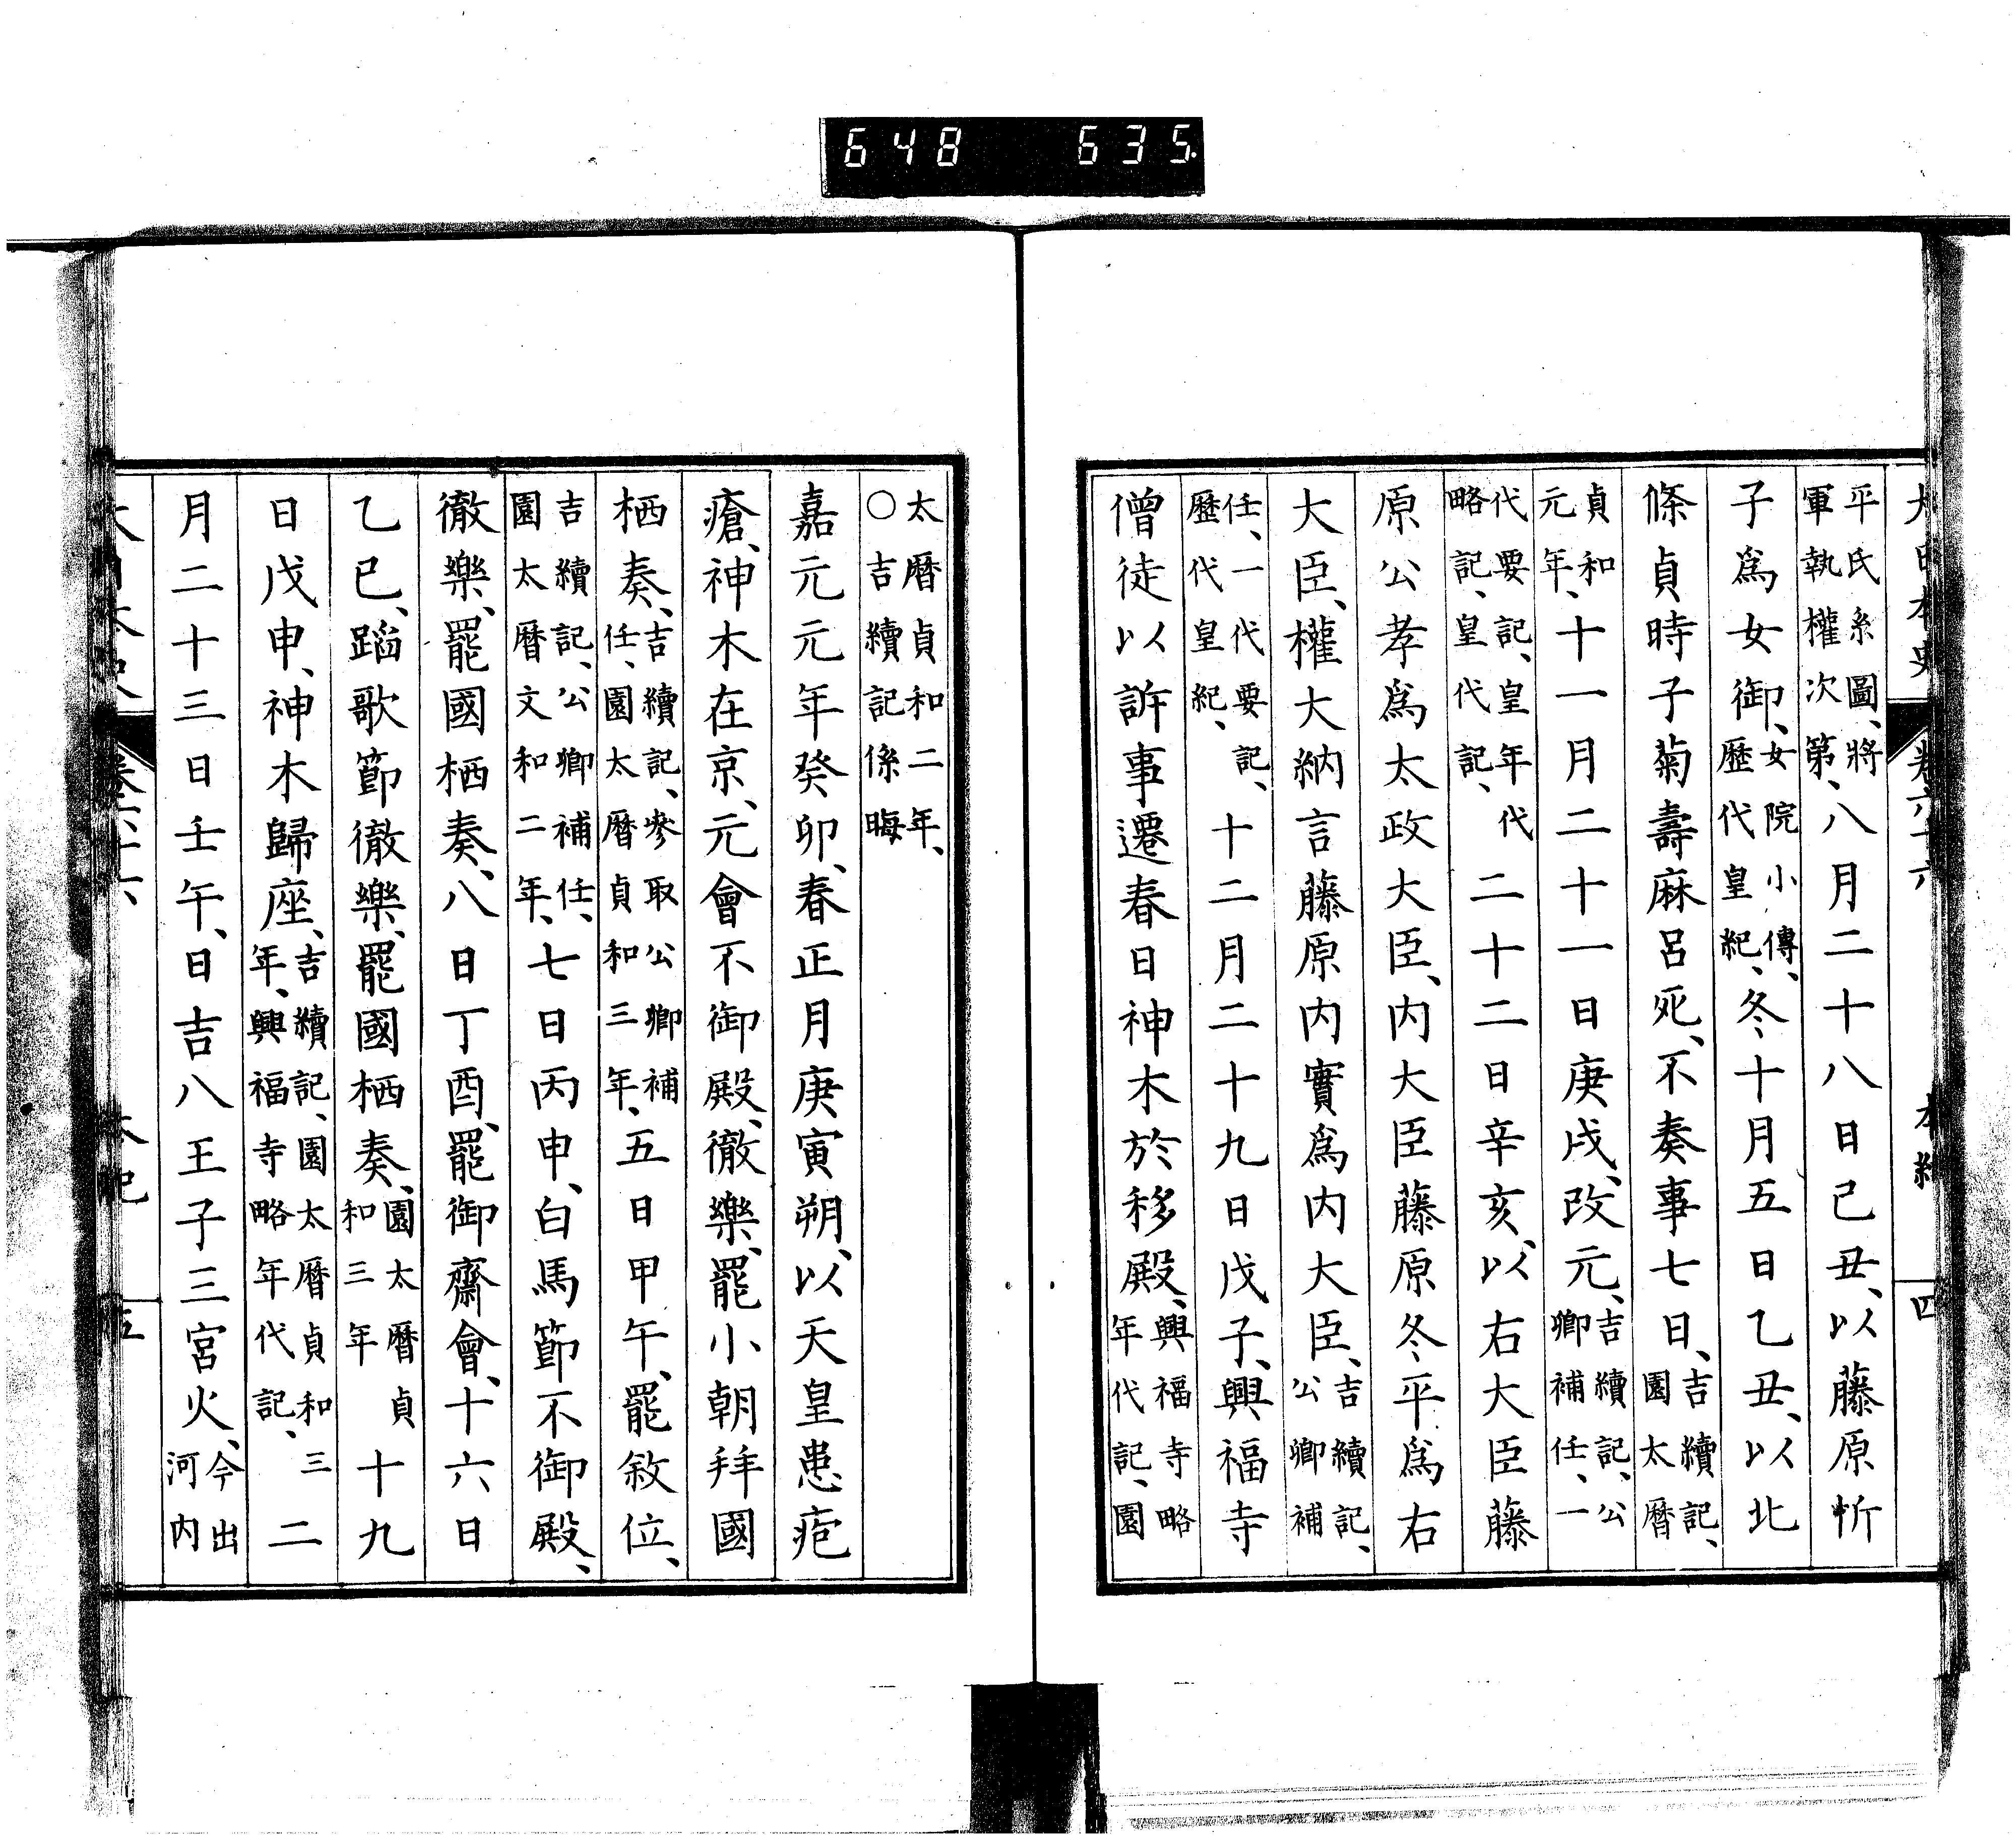 648 635.
大日本史 卷六十六 本紀 四
平氏系圖、將軍執權次第、八月二十八日己丑、以藤原忻
子爲女御、女院小傳、歷代皇紀、冬十月五日乙丑、以北
條貞時子菊壽麻呂死、不奏事七日、吉續記、園太曆
貞和元年、十一月二十一日庚戌、改元、吉續記、公卿補任、一
代要記、皇年代略記、皇代記、二十二日辛亥、以右大臣藤
原公孝爲太政大臣、内大臣藤原冬平爲右
大臣、權大納言藤原内實爲内大臣、吉續記、公卿補
任、一代要記、歷代皇紀、十二月二十九日戊子、興福寺
僧徒以訴事遷春日神木於移殿、興福寺略年代記、園
太曆貞和二年、○吉續記係晦
嘉元元年癸卯、春正月庚寅朔、以天皇患疱
瘡、神木在京、元會不御殿、徹樂、罷小朝拜國
栖奏、吉續記、參取公卿補任、園太曆貞和三年、五日甲午、罷敘位、
吉續記、公卿補任、園太曆文和二年、七日丙申、白馬節不御殿、
徹樂、罷國栖奏、八日丁酉、罷御齋會、十六日
乙巳、蹈歌節徹樂、罷國栖奏、園太曆貞和三年十九
日戊申、神木歸座、吉續記、園太曆貞和三年、興福寺略年代記、二
月二十三日壬午、日吉八王子三宮火、今出河内
大日本史 卷六十六 本紀 五